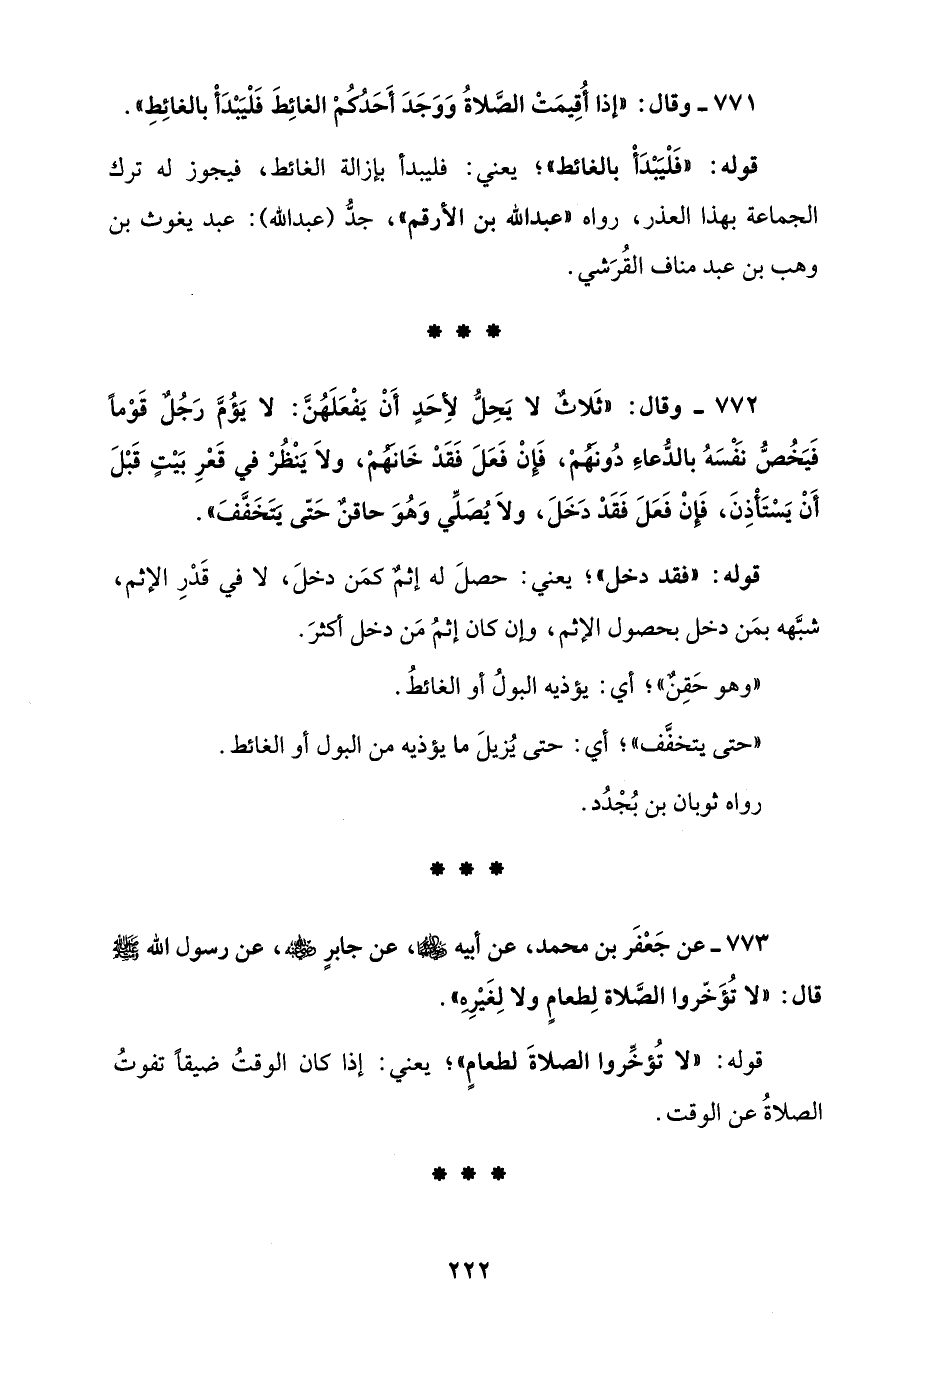 ٧٧١ ـ وقال: «إذا أُقِيمَتْ الصَّلاةُ وَوَجَدَ أَحَدُكُمْ الغائِطَ فَلْيَبْدَأْ بالغائِطِ».
قوله: «فَلْيَبْدَأْ بالغائط»؛ يعني: فليبدأ بإزالة الغائط، فيجوز له ترك
الجماعة بهذا العذر، رواه «عبدالله بن الأرقم»، جدُّ (عبدالله): عبد يغوث بن
وهب بن عبد مناف القُرَشي.
* * *
٧٧٢ ـ وقال: «ثَلاثٌ لا يَحِلُّ لأِحَدٍ أَنْ يَفْعَلَهُنَّ: لا يَؤُمَّ رَجُلٌ قَوْماً
فَيَخُصُّ نَفْسَهُ بالدُّعاءِ دُونَهُمْ، فَإِنْ فَعَلَ فَقَدْ خَانَهُمْ، ولاَ يَنْظُرْ في قَعْرِ بَيْتٍ قَبْلَ
أَنْ يَسْتَأْذِنَ، فَإِنْ فَعَلَ فَقَدْ دَخَلَ، ولاَ يُصَلِّي وَهُوَ حاقنٌ حَتّى يَتَخَفَّفَ».
قوله: «فقد دخل»؛ يعني: حصلَ له إثمٌ كمَن دخلَ، لا في قَدْرِ الإثم،
شبَّهه بمَن دخل بحصول الإثم، وإن كان إثمُ مَن دخل أكثرَ.
«وهو حَقِنٌ»؛ أي: يؤذيه البولُ أو الغائطُ.
«حتى يتخفَّف»؛ أي: حتى يُزيلَ ما يؤذيه من البول أو الغائط.
رواه ثوبان بن بُجْدُد.
* * *
٧٧٣ ـ عن جَعْفَر بن محمد، عن أبيه ﷺ، عن جابرٍ ﷺ، عن رسول الله ﷺ
قال: «لا تُؤَخّروا الصَّلاة لِطعامٍ ولا لِغَيْرِهِ».
قوله: «لا تُؤخِّروا الصلاةَ لطعامٍ»؛ يعني: إذا كان الوقتُ ضيقاً تفوتُ
الصلاةُ عن الوقت.
* * *
٢٢٢